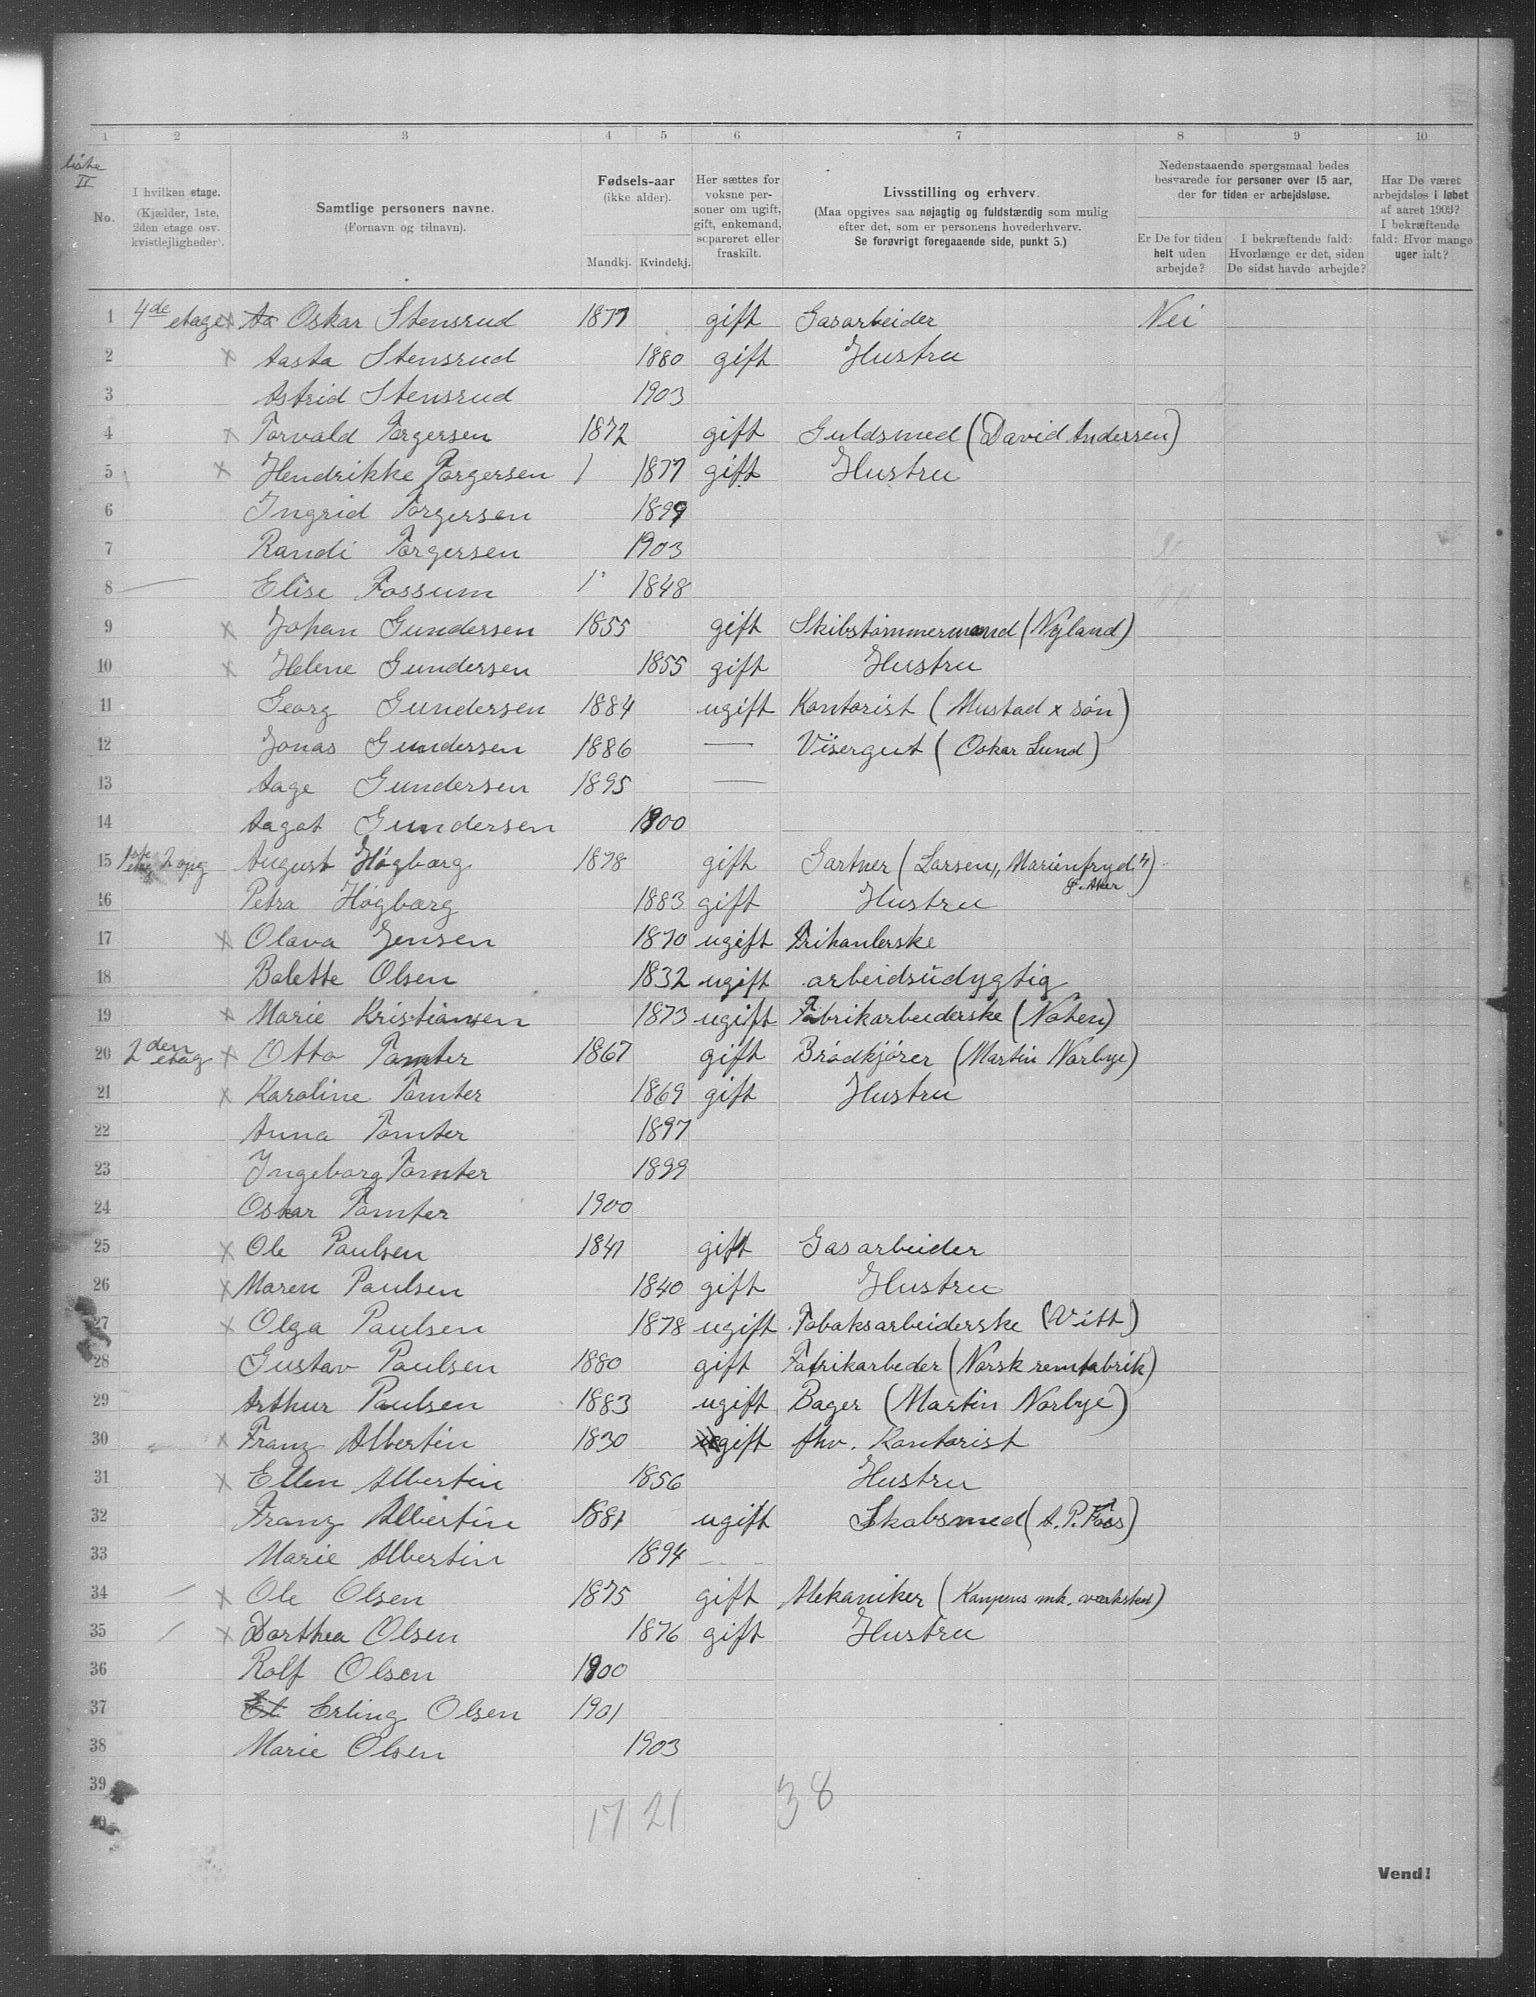 1 2 3 4 5 6 7 8 9 10
liste
II
No.
I hvilken etage.
(Kjælder, 1ste,
2den etage osv.
kvistlejligheder).
Samtlige personers navne.
(Fornavn og tilnavn).
Fødsels-aar
(ikke alder).
Mandkj. Kvindekj.
Her sættes for
voksne per-
soner om ugift,
gift, enkemand,
separeret eller
fraskilt.
Livsstilling og erhverv.
(Maa opgives saa nøjagtig og fuldstændig som mulig
efter det, som er personens hovederhverv.
Se forøvrigt foregaaende side, punkt 5.)
Nedenstaaende spørgsmaal bedes
besvarede for personer over 15 aar,
der for tiden er arbejdsløse.
Er De for tiden
helt uden
arbejde?
I bekræftende fald:
Hvorlænge er det, siden
De sidst havde arbejde?
Har De været
arbejdsløs i løbet
af aaret 1903?
I bekræftende
fald: Hvor mange
uger ialt?
1 4de etage x Aa Oskar Stensrud 1877 gift Gasarbeider Nei
2 x Aasta Stensrud 1880 gift Hustru
3 Astrid Stensrud 1903
4 x Torvald Torgersen 1872 gift Guldsmed (David Andersen)
5 x Hendrikke Torgersen 1 1877 gift Hustru
6 Ingrid Torgersen 1899
7 Randi Torgersen 1903
8 — Elise Fossum 1 1848
9 x Johan Gundersen 1855 gift Skibstømmermand (Nyland)
10 x Helene Gundersen 1855 gift Hustru
11 Georg Gundersen 1884 ugift Kontorist (Mustad x søn)
12 Jonas Gundersen 1886 — Visergut (Oskar Lund)
13 Aage Gundersen 1895 —
14 Aagot Gundersen 1900
15 1ste etag 2 opg August Høgbærg 1878 gift Gartner (Larsen „Marienfryd")
Ø. Aker
16 Petra Høgbærg 1883 gift Hustru
17 x Olava Jensen 1870 ugift Frihanlerske
18 Balette Olsen 1832 ugift arbeidsudygtig
19 x Marie Kristiansen 1873 ugift Fabrikarbeiderske (Nohen)
20 2den etag x Otto Tomter 1867 gift Brødkjører (Martin Norbye)
21 x Karoline Tomter 1869 gift Hustru
22 Anna Tomter 1897
23 Ingeborg Tomter 1899
24 Oskar Tomter 1900
25 x Ole Paulsen 1841 gift Gasarbeider
26 x Maren Paulsen 1840 gift Hustru
27 x Olga Paulsen 1878 ugift Tobaksarbeiderske (Vitt)
28 Gustav Paulsen 1880 gift Fabrikarbeder (Norsk remfabrik)
29 Arthur Paulsen 1883 ugift Bager (Martin Norbye)
30 x Franz Albertin 1830 gift fhv. Kontorist
31 x Ellen Albertin 1856 Hustru
32 Franz Albertin 1881 ugift Skabsmed (A. P. Foss)
33 Marie Albertin 1894 —
34 x Ole Olsen 1875 gift Mekaniker (Kampens mk. værksted)
35 x Dorthea Olsen 1876 gift Hustru
36 Rolf Olsen 1900
37 El Erling Olsen 1901
38 Marie Olsen 1903
39
40
17 21 38
Vend!